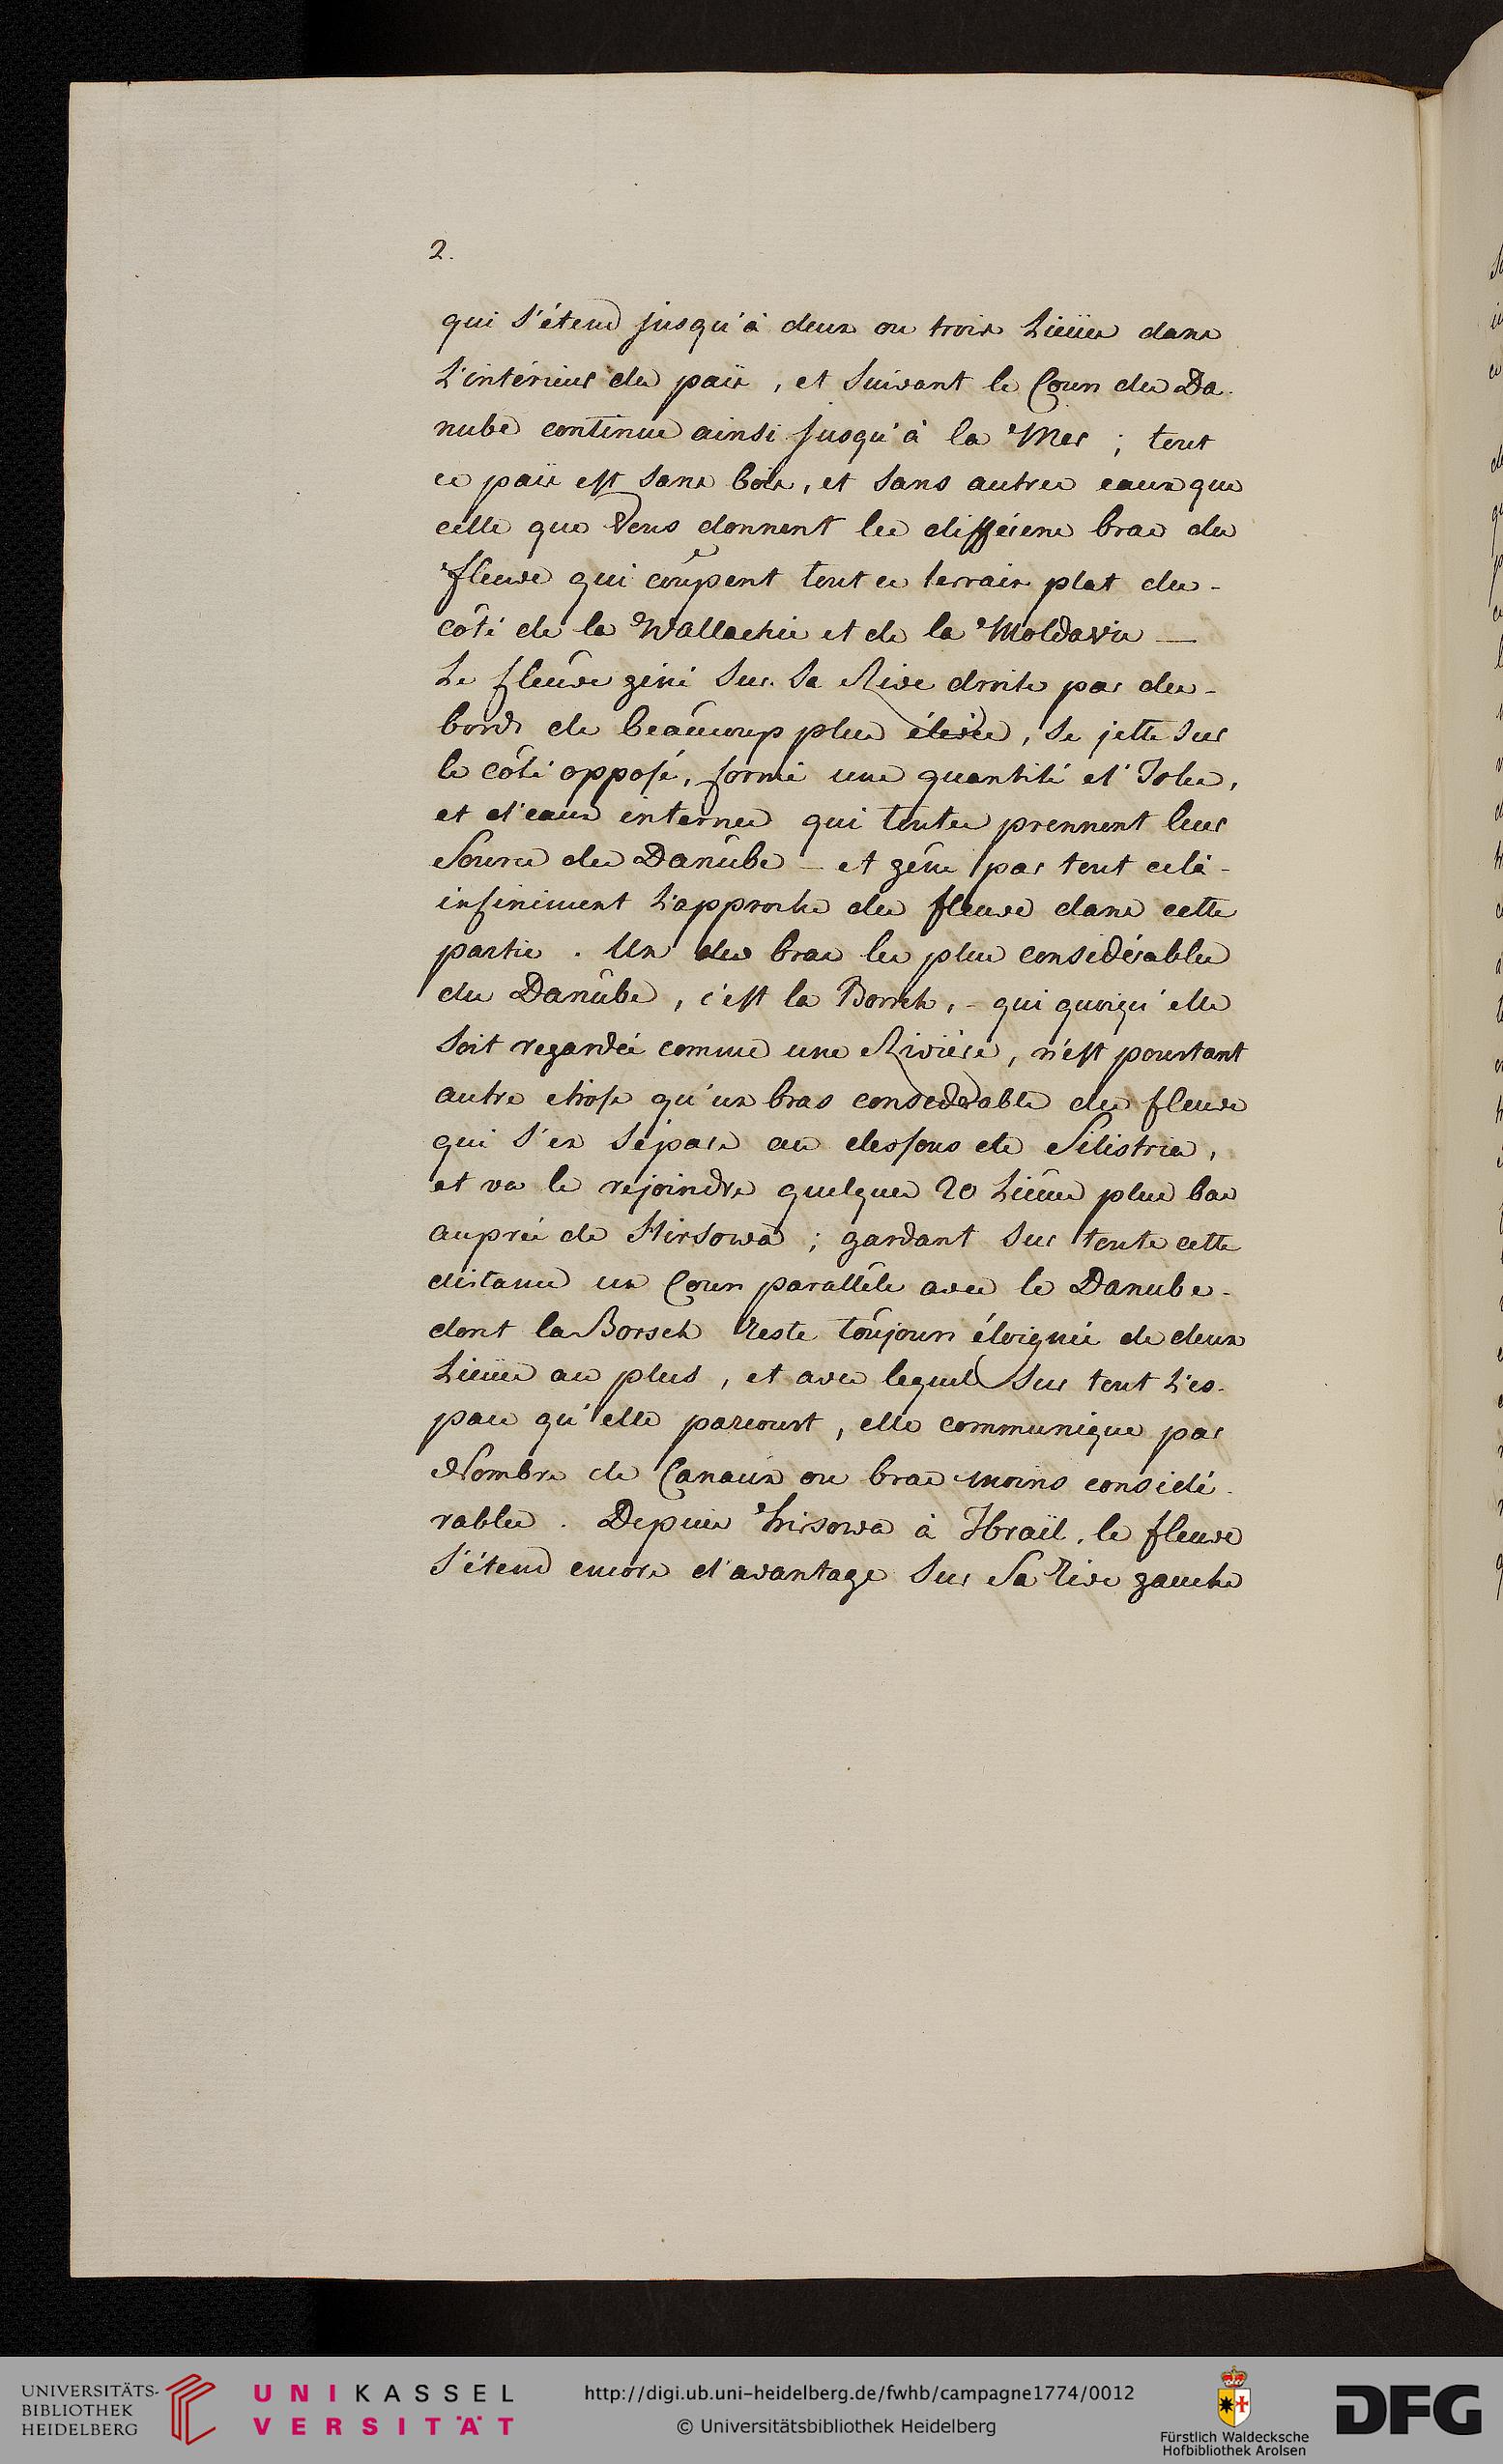 2.
qui s'étend jusqu'à deux ou trois Lieües dans
L'intérieur du païs, et suivant le Cours du Da-
nube continue ainsi jusqu'à la Mer ; tout
ce païs est sans bois, et sans autres eaux que
celle que Vous donnent les différens bras du
fleuve qui coûpent tout ce terrain plat du-
côté de la Wallachie et de la Moldavie —
Le fleûve géné sur sa Rive droite par des-
bords de beaûcoup plus élevés, se jette sur
le côté opposé, forme une quantité d'Isles,
et d'eaux internes qui toutes prennent leur
Source du Danûbe — et gêne par tout celà-
infiniment L'approche du fleuve dans cette
partie. Un des bras les plus considérables
du Danûbe, c'est la Borsch, - qui quoiqu'elle
soit regardée comme une Rivière, n'est pourtant
autre chose qu'un bras considerable du fleuve
qui s'en sépare au dessous de Silistria,
et va le rejoindre quelques 20 Lieües plus bas
auprès de Hirsowa ; gardant sur toute cette
distance un Cours paralléle avec le Danube-
dont la Borsch reste toûjours éloignée de deux
Lieües au plus, et avec lequel sur tout L'es-
pace qu'elle parcourt, elle communique par
Nombre de Canaux ou bras moins considé-
rables. Depuis Hirsowa à Ibraïl, le fleuve
s'étend encore d'avantage sur Sa rive gauche
UNIVERSITÄTS-
BIBLIOTHEK
HEIDELBERG
UNIKASSEL
VERSITÄT
http://digi.ub.uni-heidelberg.de/fwhb/campagne1774/0012
© Universitätsbibliothek Heidelberg
Fürstlich Waldecksche
Hofbibliothek Arolsen
DFG